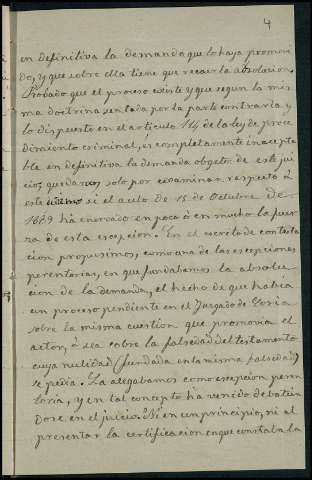 4
en definitiva la demanda que lo haya promovi
do, y que sobre ella tiene que recaer la absolucion.
Probado que el proceso existe y que segun la mis
ma doctrina sentada por la parte contraria y
lo dispuesto en el artículo 114 de la ley de proce
dimiento criminal, es completamente inacepta
ble en definitiva la demanda objeto de este jui
cio, quedanos solo por examinar respecto á
este si el auto de 15 de Octubre de
1889 há enervado en poco ó en mucho la fuer
za de esta escepcion. En el escrito de contesta
cion propusimos, como una de las escepciones
perentorias, en que fundabamos la absolu
cion de la demanda, el hecho de que habia
un proceso pendiente en el Juzgado de Soria
sobre la misma cuestion que promovia el
actor, ó sea sobre la falsedad del testamento
cuya nulidad (fundada en la misma falsedad)
se pedia. La alegabamos como escepcion peren
toria, y en tal concepto ha venido debatien
dose en el juicio. Ni en un principio, ni al
presentar la certificacion en que constaba la